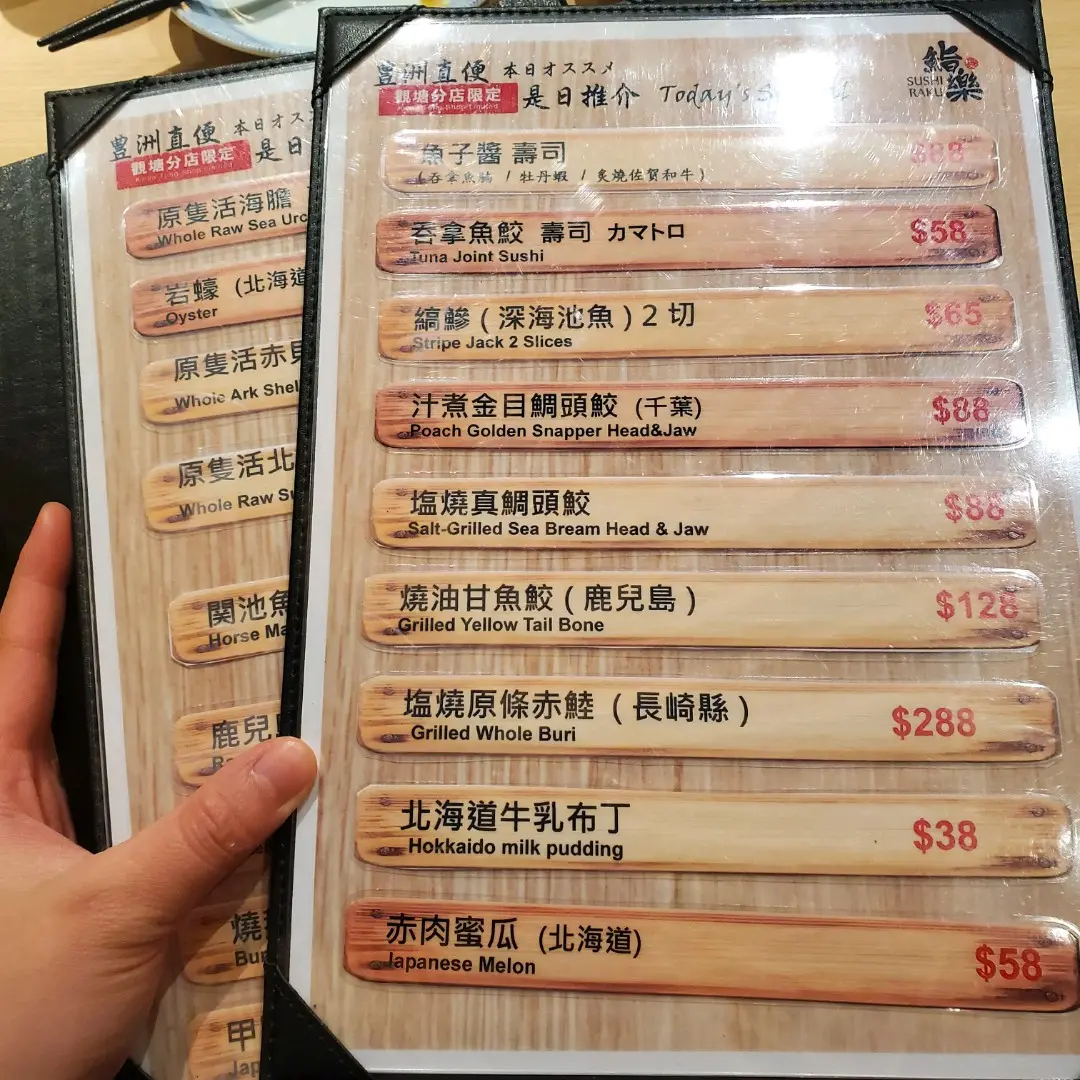 豊洲直便 本日オススメ
観塘分店限定 是日推介 Today's
鮨樂
SUSHI
RAKU
魚子醬 壽司 $88
(吞拿魚腩 / 牡丹蝦 / 炙燒佐賀和牛)
吞拿魚鮫 壽司 カマトロ $58
Tuna Joint Sushi
縞鰺 (深海池魚) 2 切 $65
Stripe Jack 2 Slices
汁煮金目鯛頭鮫 (千葉) $88
Poach Golden Snapper Head&Jaw
塩燒真鯛頭鮫 $88
Salt-Grilled Sea Bream Head & Jaw
燒油甘魚鮫 (鹿兒島) $128
Grilled Yellow Tail Bone
塩燒原條赤鯥 (長崎縣) $288
Grilled Whole Buri
北海道牛乳布丁 $38
Hokkaido milk pudding
赤肉蜜瓜 (北海道) $58
Japanese Melon
豊洲直便 本日オス
観塘分店限定 是日
原隻活海膽
Whole Raw Sea Urc
岩蠔 (北海道
Oyster
原隻活赤貝
Whole Ark Shel
原隻活北
Whole Raw Su
関池魚
Horse Ma
鹿兒
燒
Bur
甲
Jap